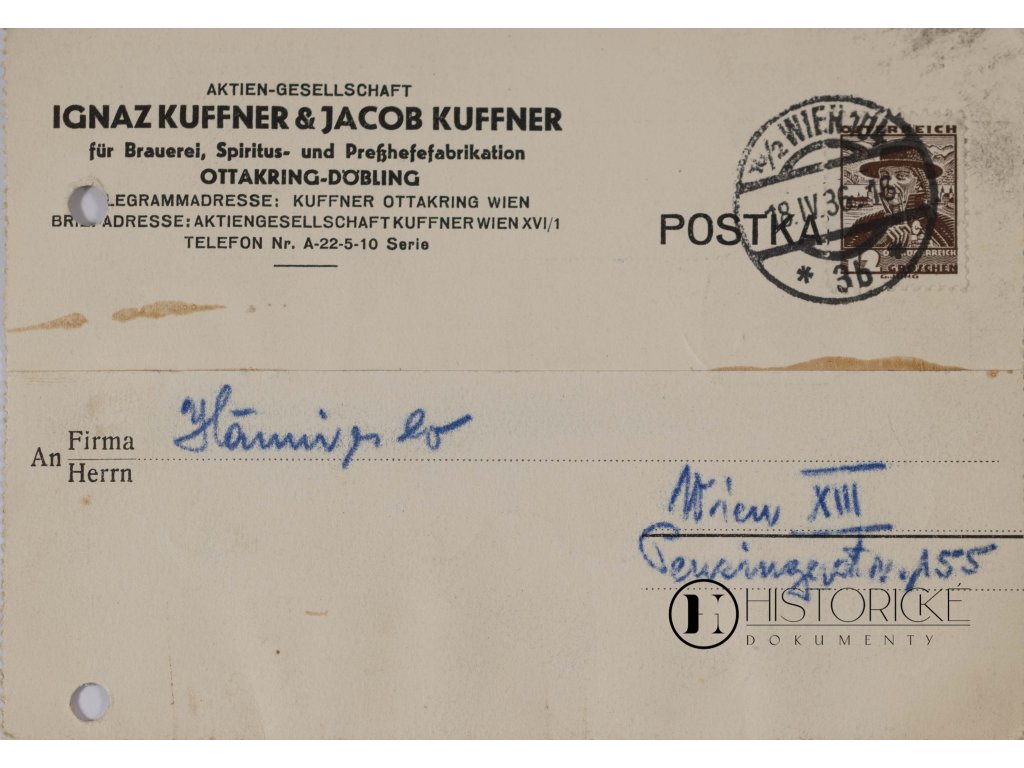 AKTIEN-GESELLSCHAFT
IGNAZ KUFFNER & JACOB KUFFNER
für Brauerei, Spiritus- und Preßhefefabrikation
OTTAKRING-DÖBLING
LEGRAMMADRESSE: KUFFNER OTTAKRING WIEN
BRIE ADRESSE: AKTIENGESELLSCHAFT KUFFNER WIEN XVI/1
TELEFON Nr. A-22-5-10 Serie
POSTKA
WIEN
18.IV.36
* 3b *
ÖSTERREICH
GROSCHEN
An Firma
Herrn
Co
Wien XIII
Penzingerstr. 155
HISTORICKÉ
DOKUMENTY